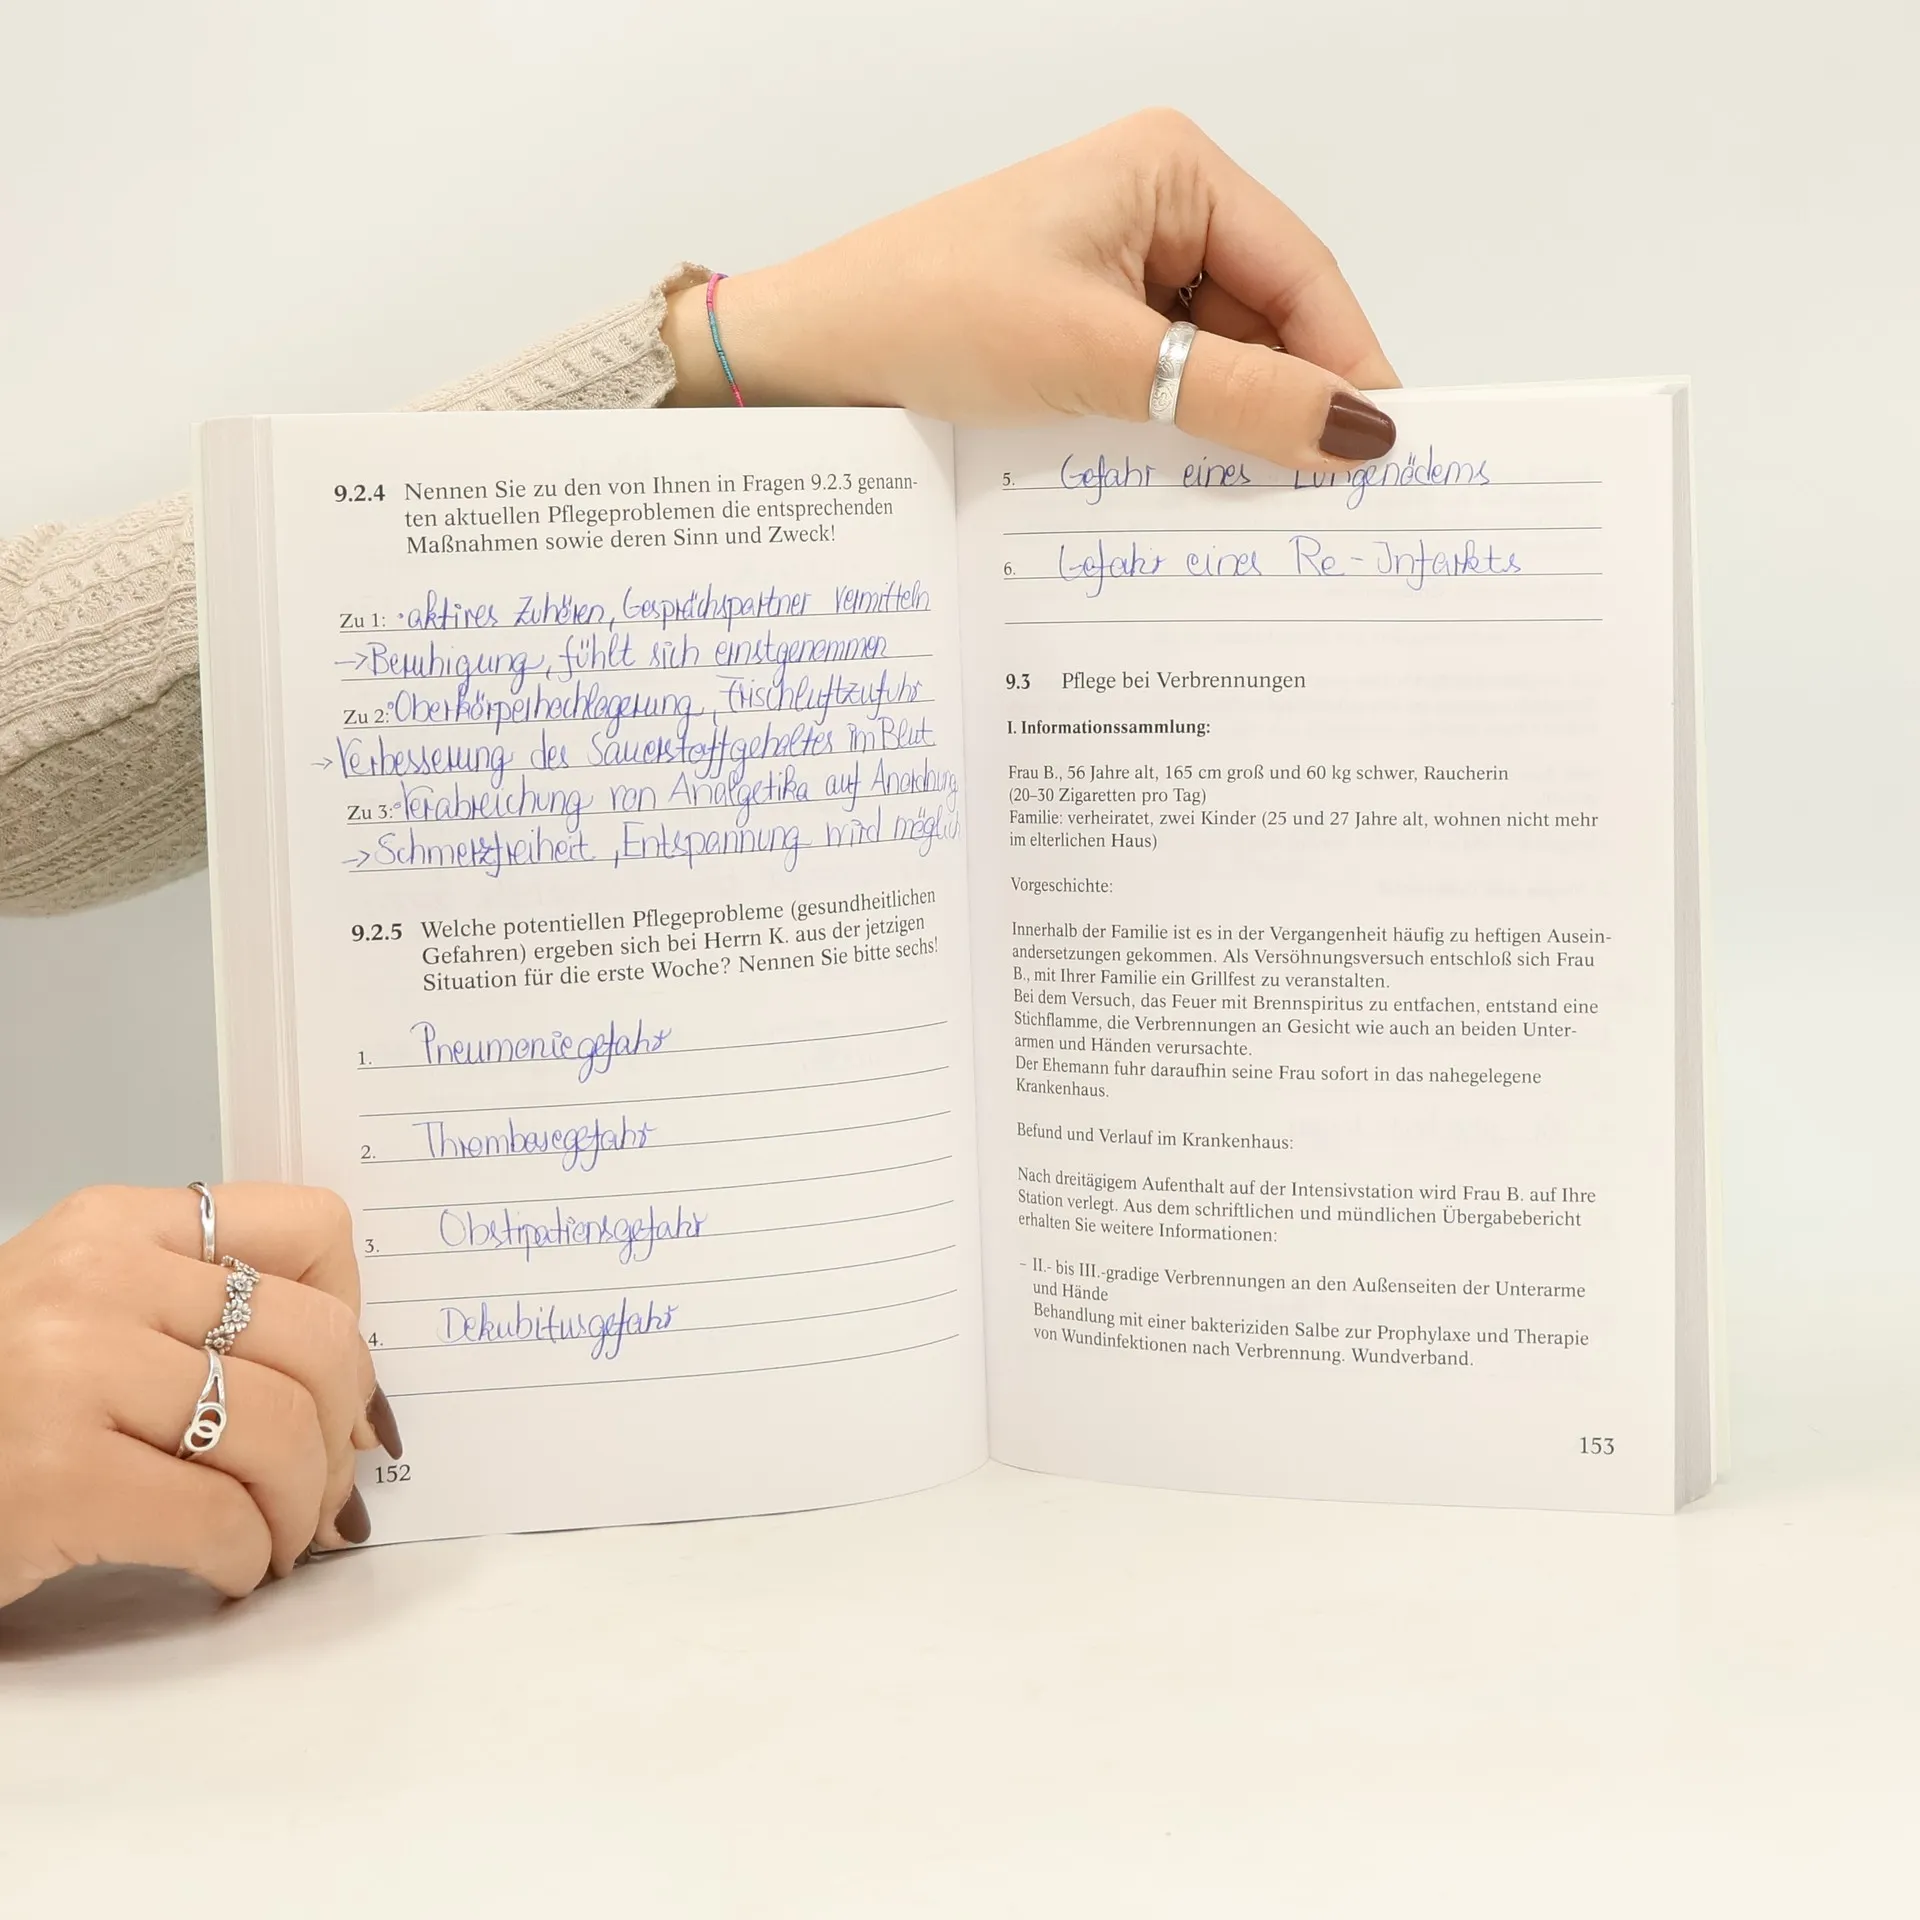 9.2.4 Nennen Sie zu den von Ihnen in Fragen 9.2.3 genann-
ten aktuellen Pflegeproblemen die entsprechenden
Maßnahmen sowie deren Sinn und Zweck!
Zu 1: • aktives Zuhören, Gesprächspartner vermitteln
→ Beruhigung, fühlt sich ernstgenommen
Zu 2: • Oberkörperhochlagerung, Frischluftzufuhr
→ Verbesserung des Sauerstoffgehaltes im Blut
Zu 3: • Verabreichung von Analgetika auf Anordnung
→ Schmerzfreiheit, Entspannung wird möglich
9.2.5 Welche potentiellen Pflegeprobleme (gesundheitlichen
Gefahren) ergeben sich bei Herrn K. aus der jetzigen
Situation für die erste Woche? Nennen Sie bitte sechs!
1. Pneumoniegefahr
2. Thrombosegefahr
3. Obstipationsgefahr
4. Dekubitusgefahr
152
5. Gefahr eines Lungenödems
6. Gefahr eines Re-Infarkts
9.3 Pflege bei Verbrennungen
I. Informationssammlung:
Frau B., 56 Jahre alt, 165 cm groß und 60 kg schwer, Raucherin
(20–30 Zigaretten pro Tag)
Familie: verheiratet, zwei Kinder (25 und 27 Jahre alt, wohnen nicht mehr
im elterlichen Haus)
Vorgeschichte:
Innerhalb der Familie ist es in der Vergangenheit häufig zu heftigen Ausein-
andersetzungen gekommen. Als Versöhnungsversuch entschloß sich Frau
B., mit Ihrer Familie ein Grillfest zu veranstalten.
Bei dem Versuch, das Feuer mit Brennspiritus zu entfachen, entstand eine
Stichflamme, die Verbrennungen an Gesicht wie auch an beiden Unter-
armen und Händen verursachte.
Der Ehemann fuhr daraufhin seine Frau sofort in das nahegelegene
Krankenhaus.
Befund und Verlauf im Krankenhaus:
Nach dreitägigem Aufenthalt auf der Intensivstation wird Frau B. auf Ihre
Station verlegt. Aus dem schriftlichen und mündlichen Übergabebericht
erhalten Sie weitere Informationen:
– II.- bis III.-gradige Verbrennungen an den Außenseiten der Unterarme
und Hände
Behandlung mit einer bakteriziden Salbe zur Prophylaxe und Therapie
von Wundinfektionen nach Verbrennung. Wundverband.
153